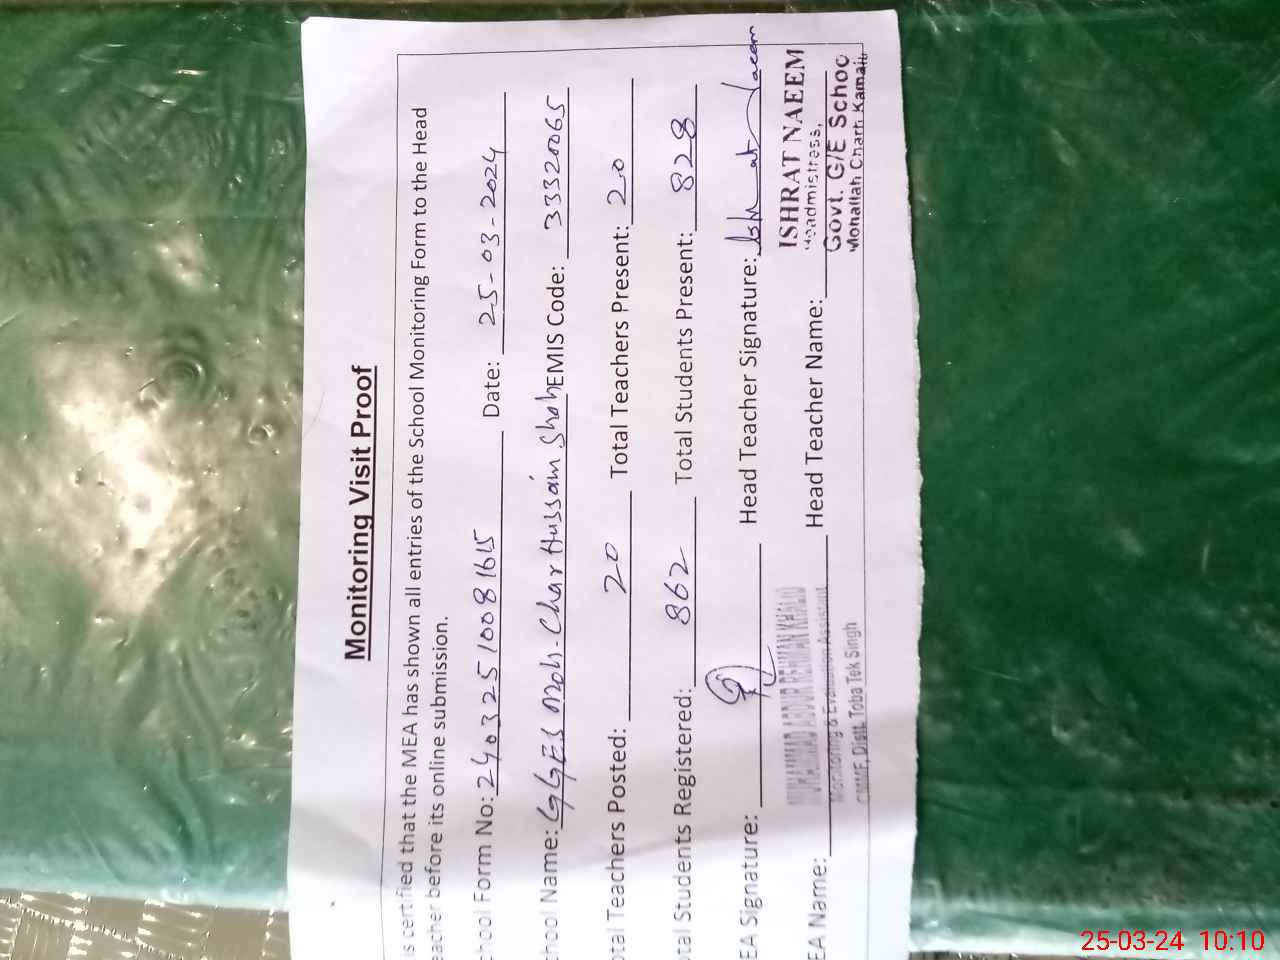 Monitoring Visit Proof
is certified that the MEA has shown all entries of the School Monitoring Form to the Head
eacher before its online submission.
chool Form No: 24032510081615 Date: 25-03-2024
chool Name: GGES Moh-Char Hussain Shah EMIS Code: 33320065
otal Teachers Posted: 20 Total Teachers Present: 20
otal Students Registered: 862 Total Students Present: 828
EA Signature: Head Teacher Signature: Ishrat Naeem
MUHAMMAD ABDUR REHMAN KHALID ISHRAT NAEEM
Monitoring & Evaluation Assistant Headmistress,
EA Name: Head Teacher Name: Govt. G/E Schoo
Distt. Toba Tek Singh Mohallah Kamalia
25-03-24 10:10